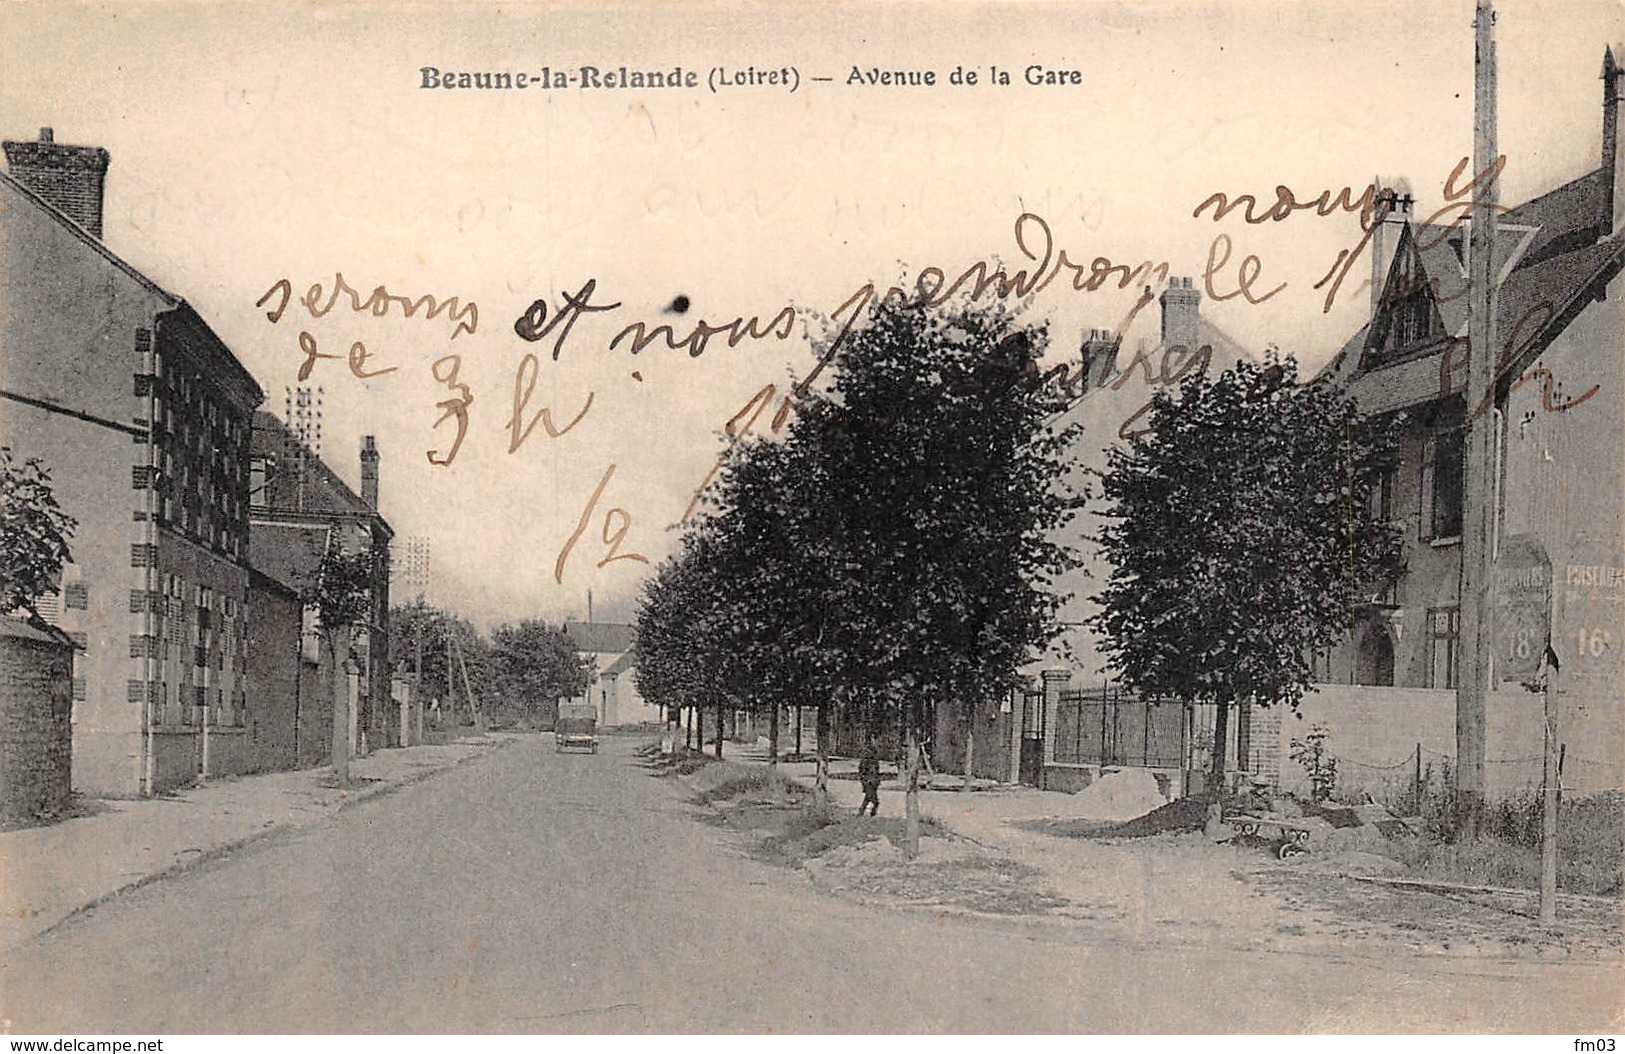 Beaune-la-Rolande (Loiret) — Avenue de la Gare
nous y
serons et nous pendrons le
de 3 h
1/2
PUISEAUX
18
16
www.delcampe.net
fm03